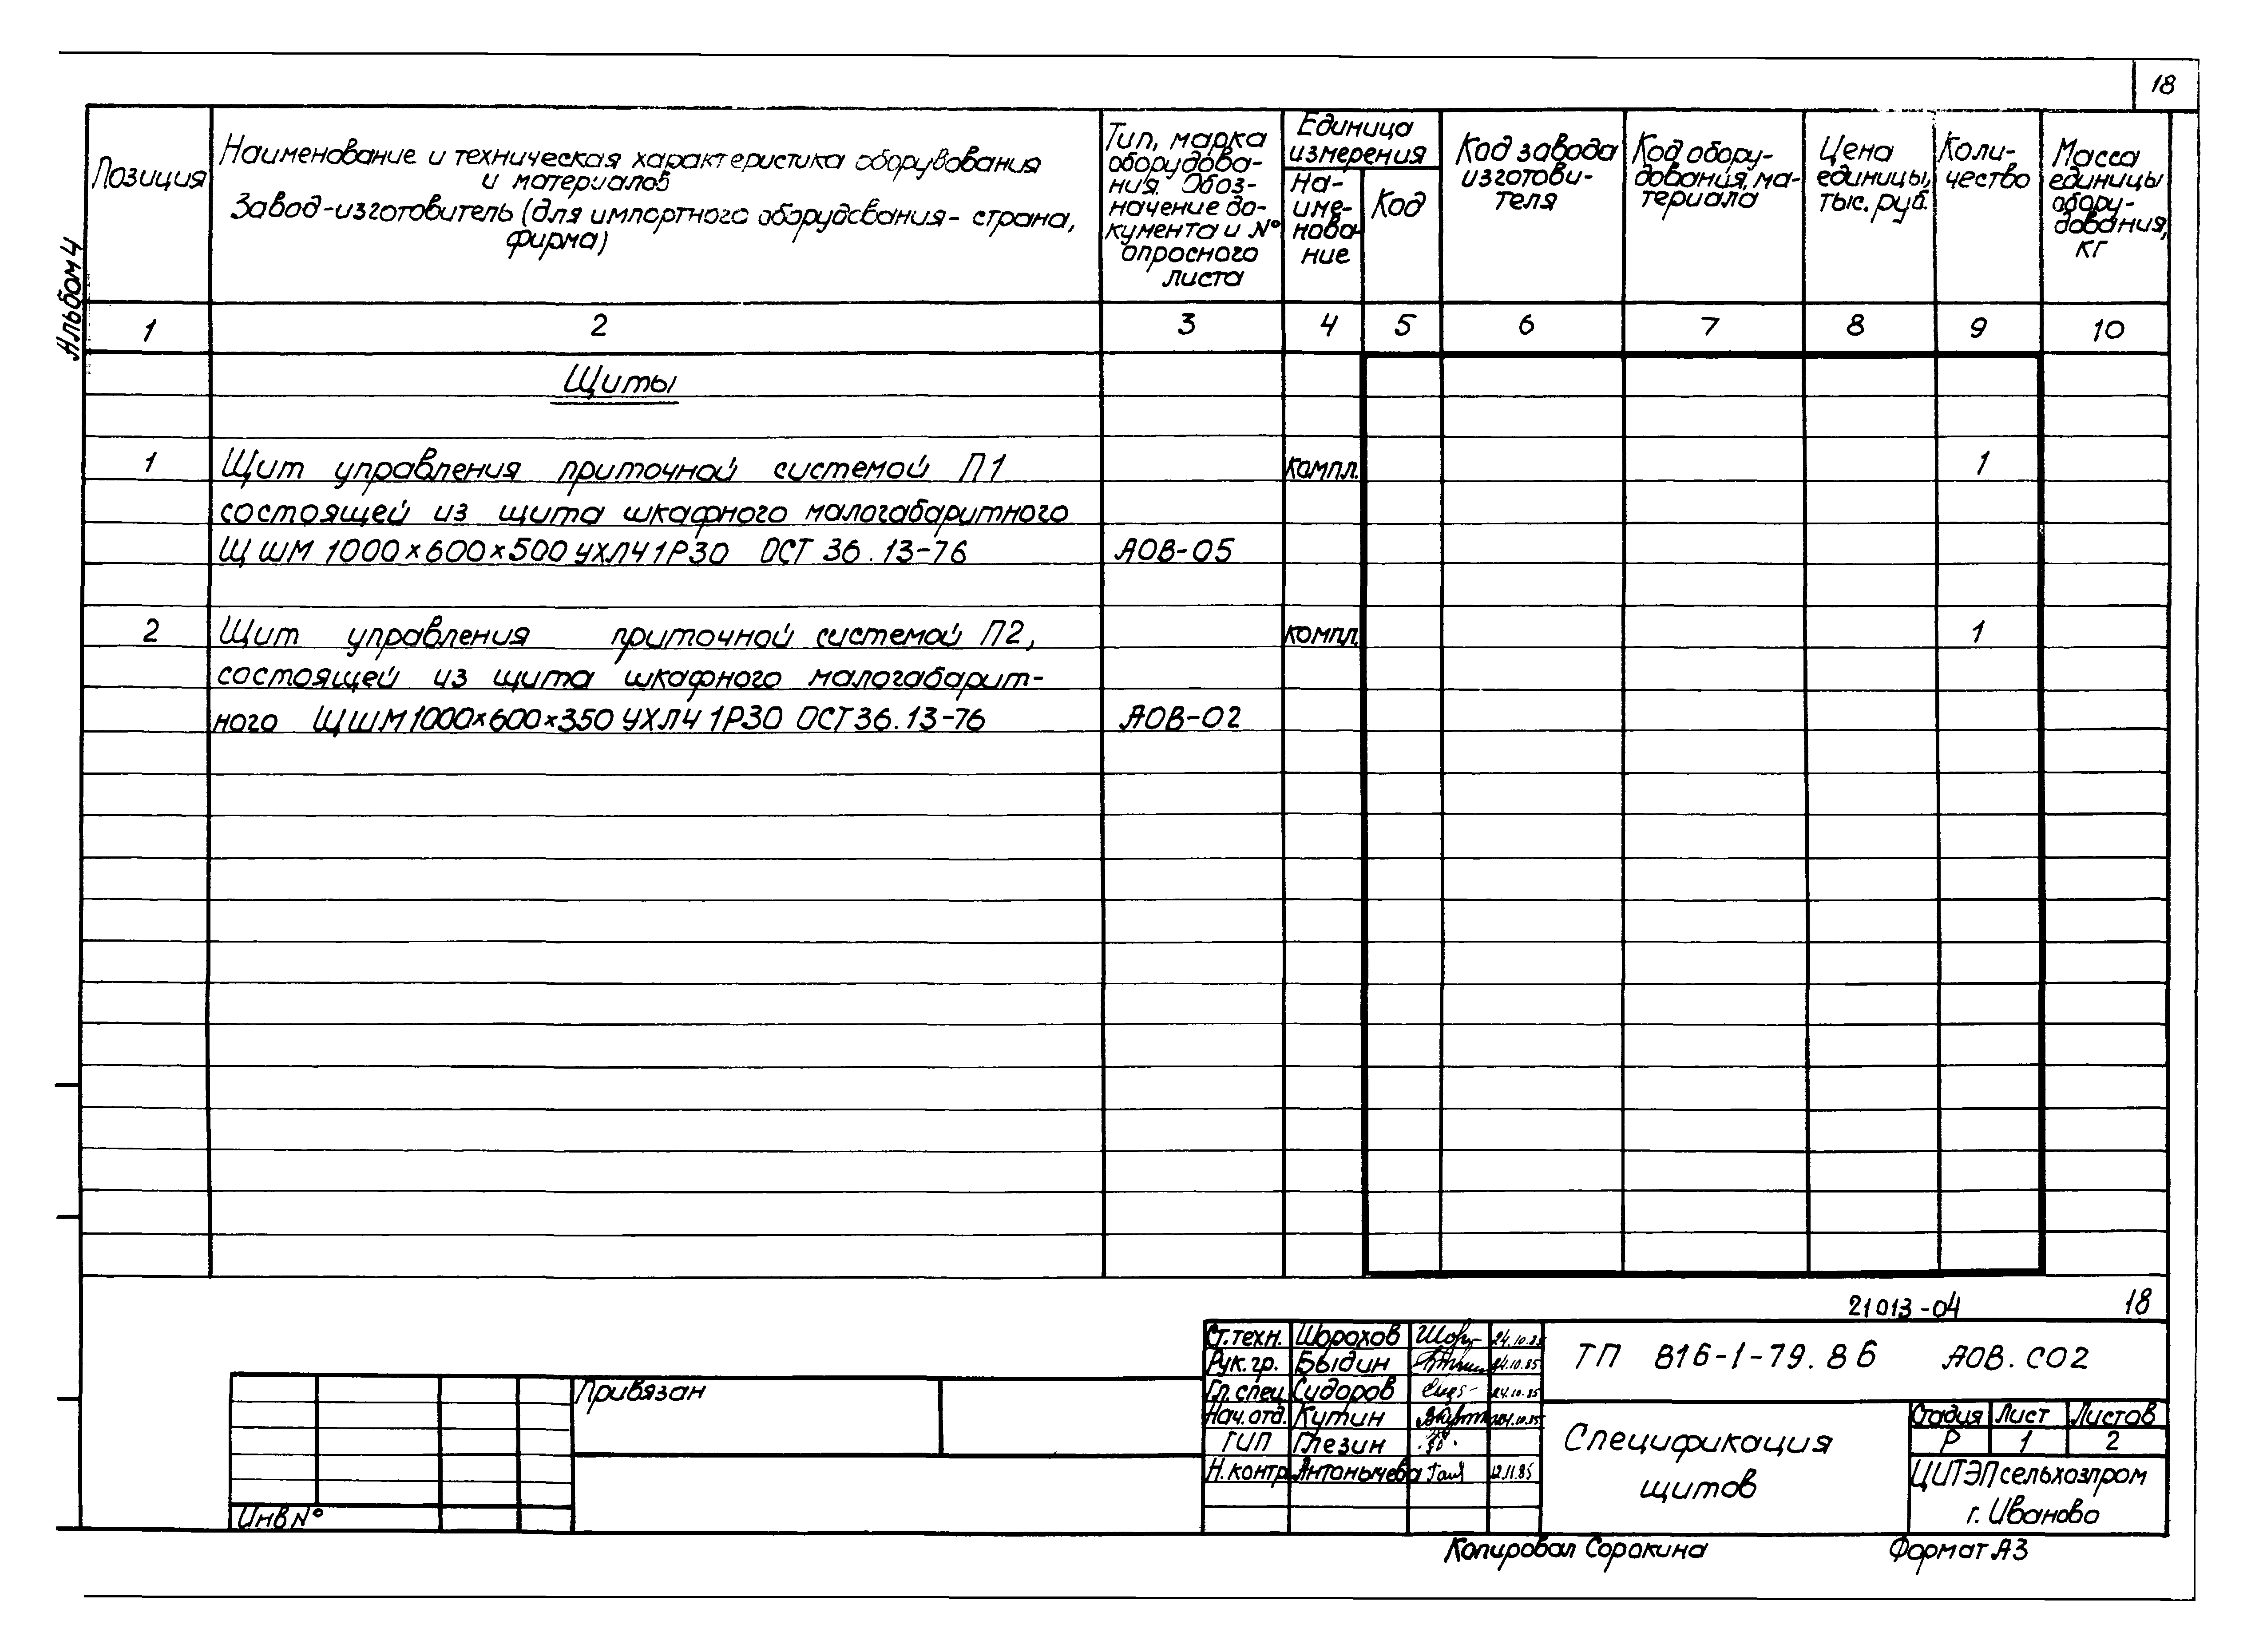 18
Альбом 4
Позиция
Наименование и техническая характеристика оборудования
и материалов
Завод-изготовитель (для импортного оборудования- страна,
фирма)
Тип, марка
оборудова-
ния. Обоз-
начение до-
кумента и N°
опросного
листа
Единица
измерения
На-
име-
нова-
ние
Код
Код завода
изготови-
теля
Код обору-
дования, ма-
териала
Цена
единицы,
тыс. руб.
Коли-
чество
Масса
единицы
обору-
дования,
кг
1 2 3 4 5 6 7 8 9 10
Щиты
1 Щит управления приточной системой П1 компл. 1
состоящей из щита шкафного малогабаритного
ЩШМ 1000×600×500 УХЛ4 1Р30 ОСТ 36.13-76 АОВ-05
2 Щит управления приточной системой П2, компл. 1
состоящей из щита шкафного малогабарит-
ного ЩШМ 1000×600×350 УХЛ4 1Р30 ОСТ 36.13-76 АОВ-02
21013-04 18
Привязан
Инв N°
Ст.техн. Шорохов 24.10.85
Рук.гр. Быдин 24.10.85
Гл.спец. Сидоров 24.10.85
Нач.отд. Кутин 24.10.85
ГИП Глезин
Н.контр. Антонычева 12.11.85
ТП 816-1-79.86 АОВ.СО2
Спецификация
щитов
Стадия Лист Листов
Р 1 2
ЦИТЭПсельхозпром
г. Иваново
Копировал Сорокина Формат А3